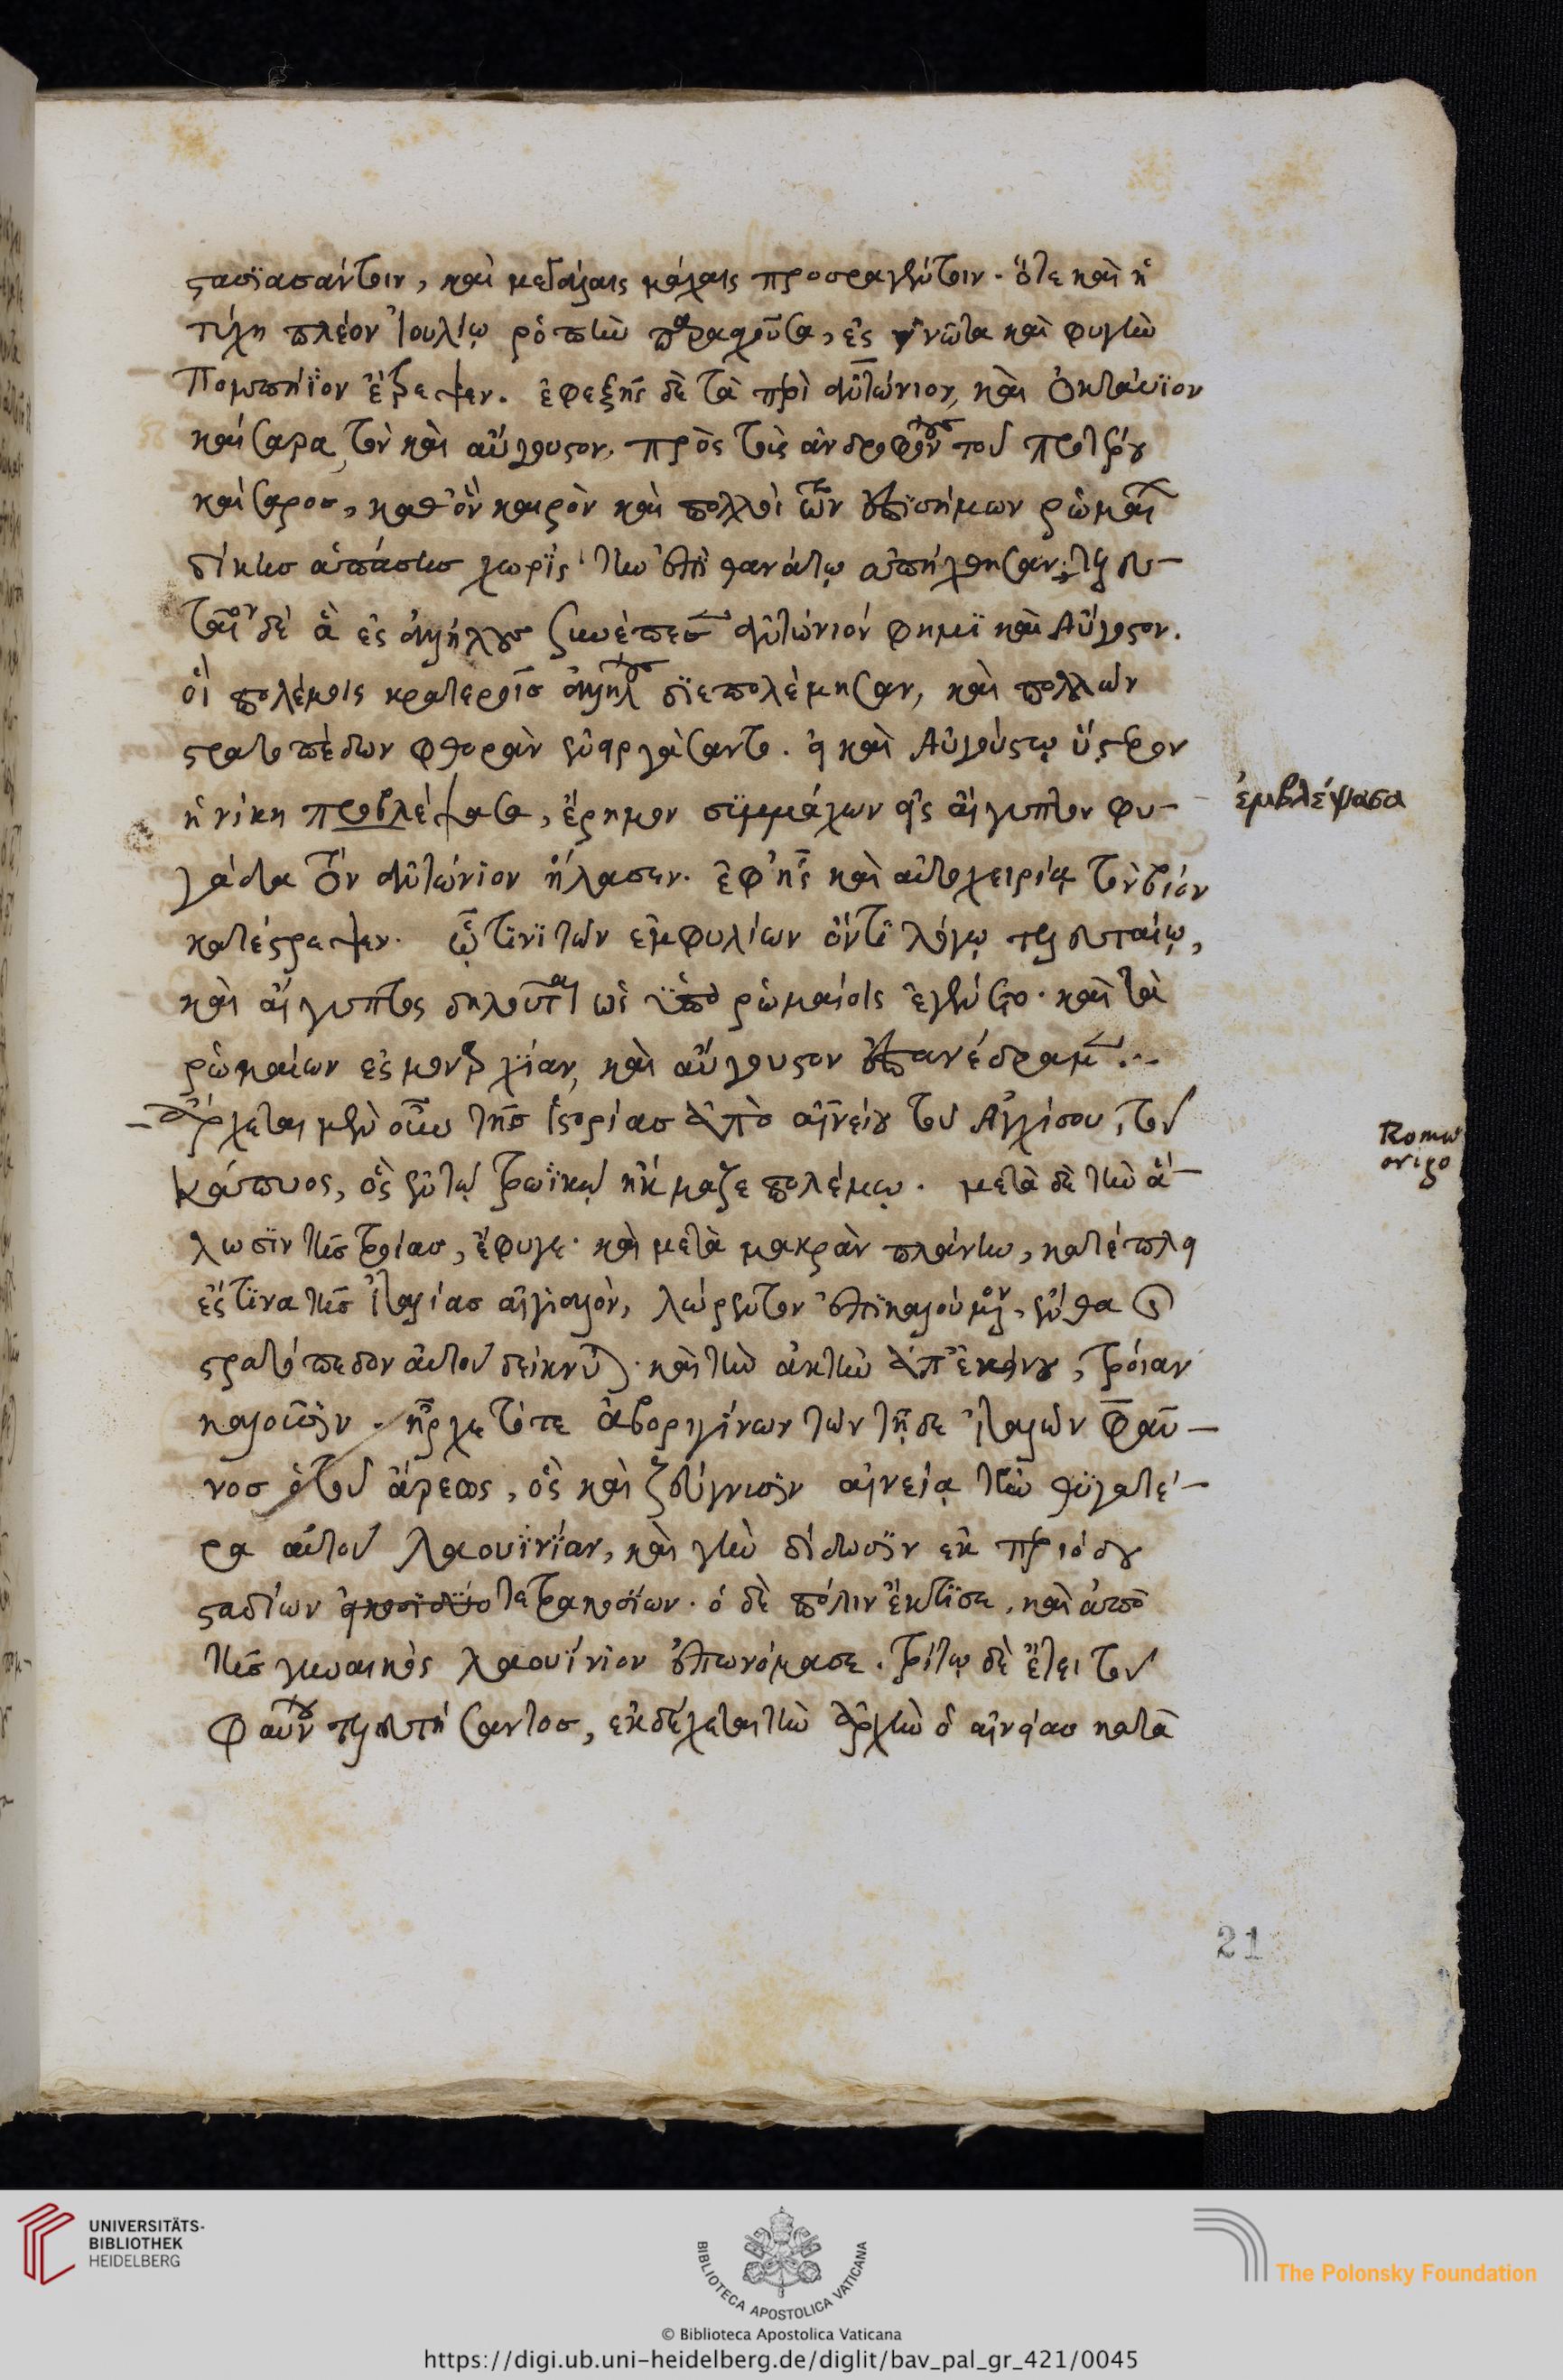 στασϊασάντοιν, καὶ μεγάλαις μάχαις προσραγέντοιν. ὅτε καὶ ἡ
τύχη πλέον Ἰουλίῳ ῥοπὴν παρασχοῦσα, ἐς νῶτα καὶ φυγὴν
Πομπήϊον ἔτρεψεν. ἐφεξῆς δὲ τὰ περὶ ἀντώνιον, καὶ ὀκτάουϊον
καίσαρα, τὸν καὶ αὔγουστον, πρὸς τοῖς ἀνδροφόνους τοῦ προτέρου
καίσαρος, καθ' ὃν καιρὸν καὶ πολλοὶ τῶν ἐπϊσήμων ῥωμαίων
δίκης ἁπάσης χωρὶς τὴν ἐπὶ θανάτῳ ἀπήχθησαν· τελευ-
ταῖον δὲ ἃ ἐς ἀλλήλους ξυνέπεσεν ἀντώνιόν φημϊ καὶ Αὔγουστον.
οἳ πολέμοις κρατεροῖς ἀλλήλους δϊεπολέμησαν, καὶ πολλῶν
στρατοπέδων φθορὰν ἐνειργάσαντο. εἰ καὶ Αὐγούστῳ ὕστερον
ἡ νίκη προβλέψασα, ἔρημον συμμάχων εἰς αἴγυπτον φυ-
γάδα τὸν ἀντώνϊον ἤλασεν. ἐφ' ἧς καὶ αὐτοχειρίᾳ τὸν βίον
κατέστρεψεν. ᾧτινϊ τῶν ἐμφυλίων ὄντϊ λόγῳ τελευταίῳ,
καὶ αἴγυπτος δηλοῦται ὡς ὑπὸ ῥωμαίοις ἐγένετο. καὶ τὰ
ῥωμαίων ἐς μοναρχίαν, καὶ αὔγουστον ἐπανέδραμεν.
ἄρχεται μὲν οὖν τῆς ἱστορίας ἀπὸ αἰνείου τοῦ Ἀγχίσου, τοῦ
κάπυος, ὃς ἐν τῷ τρωϊκῷ ἤκμαζε πολέμῳ. μετὰ δὲ τὴν ἅ-
λωσϊν τῆς τροίας, ἔφυγε. καὶ μετὰ μακρὰν πλάνην, κατέπλει
ἔς τϊνα τῆς ἰταλίας αἰγϊαλὸν, λώρεντον ἐπϊκαλούμενον, ἔνθα καὶ
στρατόπεδον αὐτοῦ δείκνυται. καὶ τὴν ἀκτὴν ἀπ' ἐκείνου, τροίαν
καλοῦσϊν. ἦρχε τότε ἀβοριγίνων τῶν τῇδε ἰταλῶν φαῦ-
νος ὁ τοῦ ἄρεως, ὃς καὶ ζεύγνυσϊν αἰνείᾳ τὴν θυγατέ-
ρα αὐτοῦ λαουϊνίαν, καὶ γῆν δίδωσϊν ἐκ περιόδου
σταδίων τετρακοσϊων. ὁ δὲ πόλιν ἔκτϊσε, καὶ ἀπὸ
τῆς γυναικὸς λαουΐνϊον ἐπωνόμασε. τρίτῳ δὲ ἔτει τοῦ
φαύνου τελευτήσαντος, ἐκδέχεται τὴν ἀρχὴν ὁ αἰνείας κατὰ
ἐμβλέψασα
Romae
origo
21
UNIVERSITÄTS-
BIBLIOTHEK
HEIDELBERG
BIBLIOTECA APOSTOLICA VATICANA
© Biblioteca Apostolica Vaticana
The Polonsky Foundation
https://digi.ub.uni-heidelberg.de/diglit/bav_pal_gr_421/0045